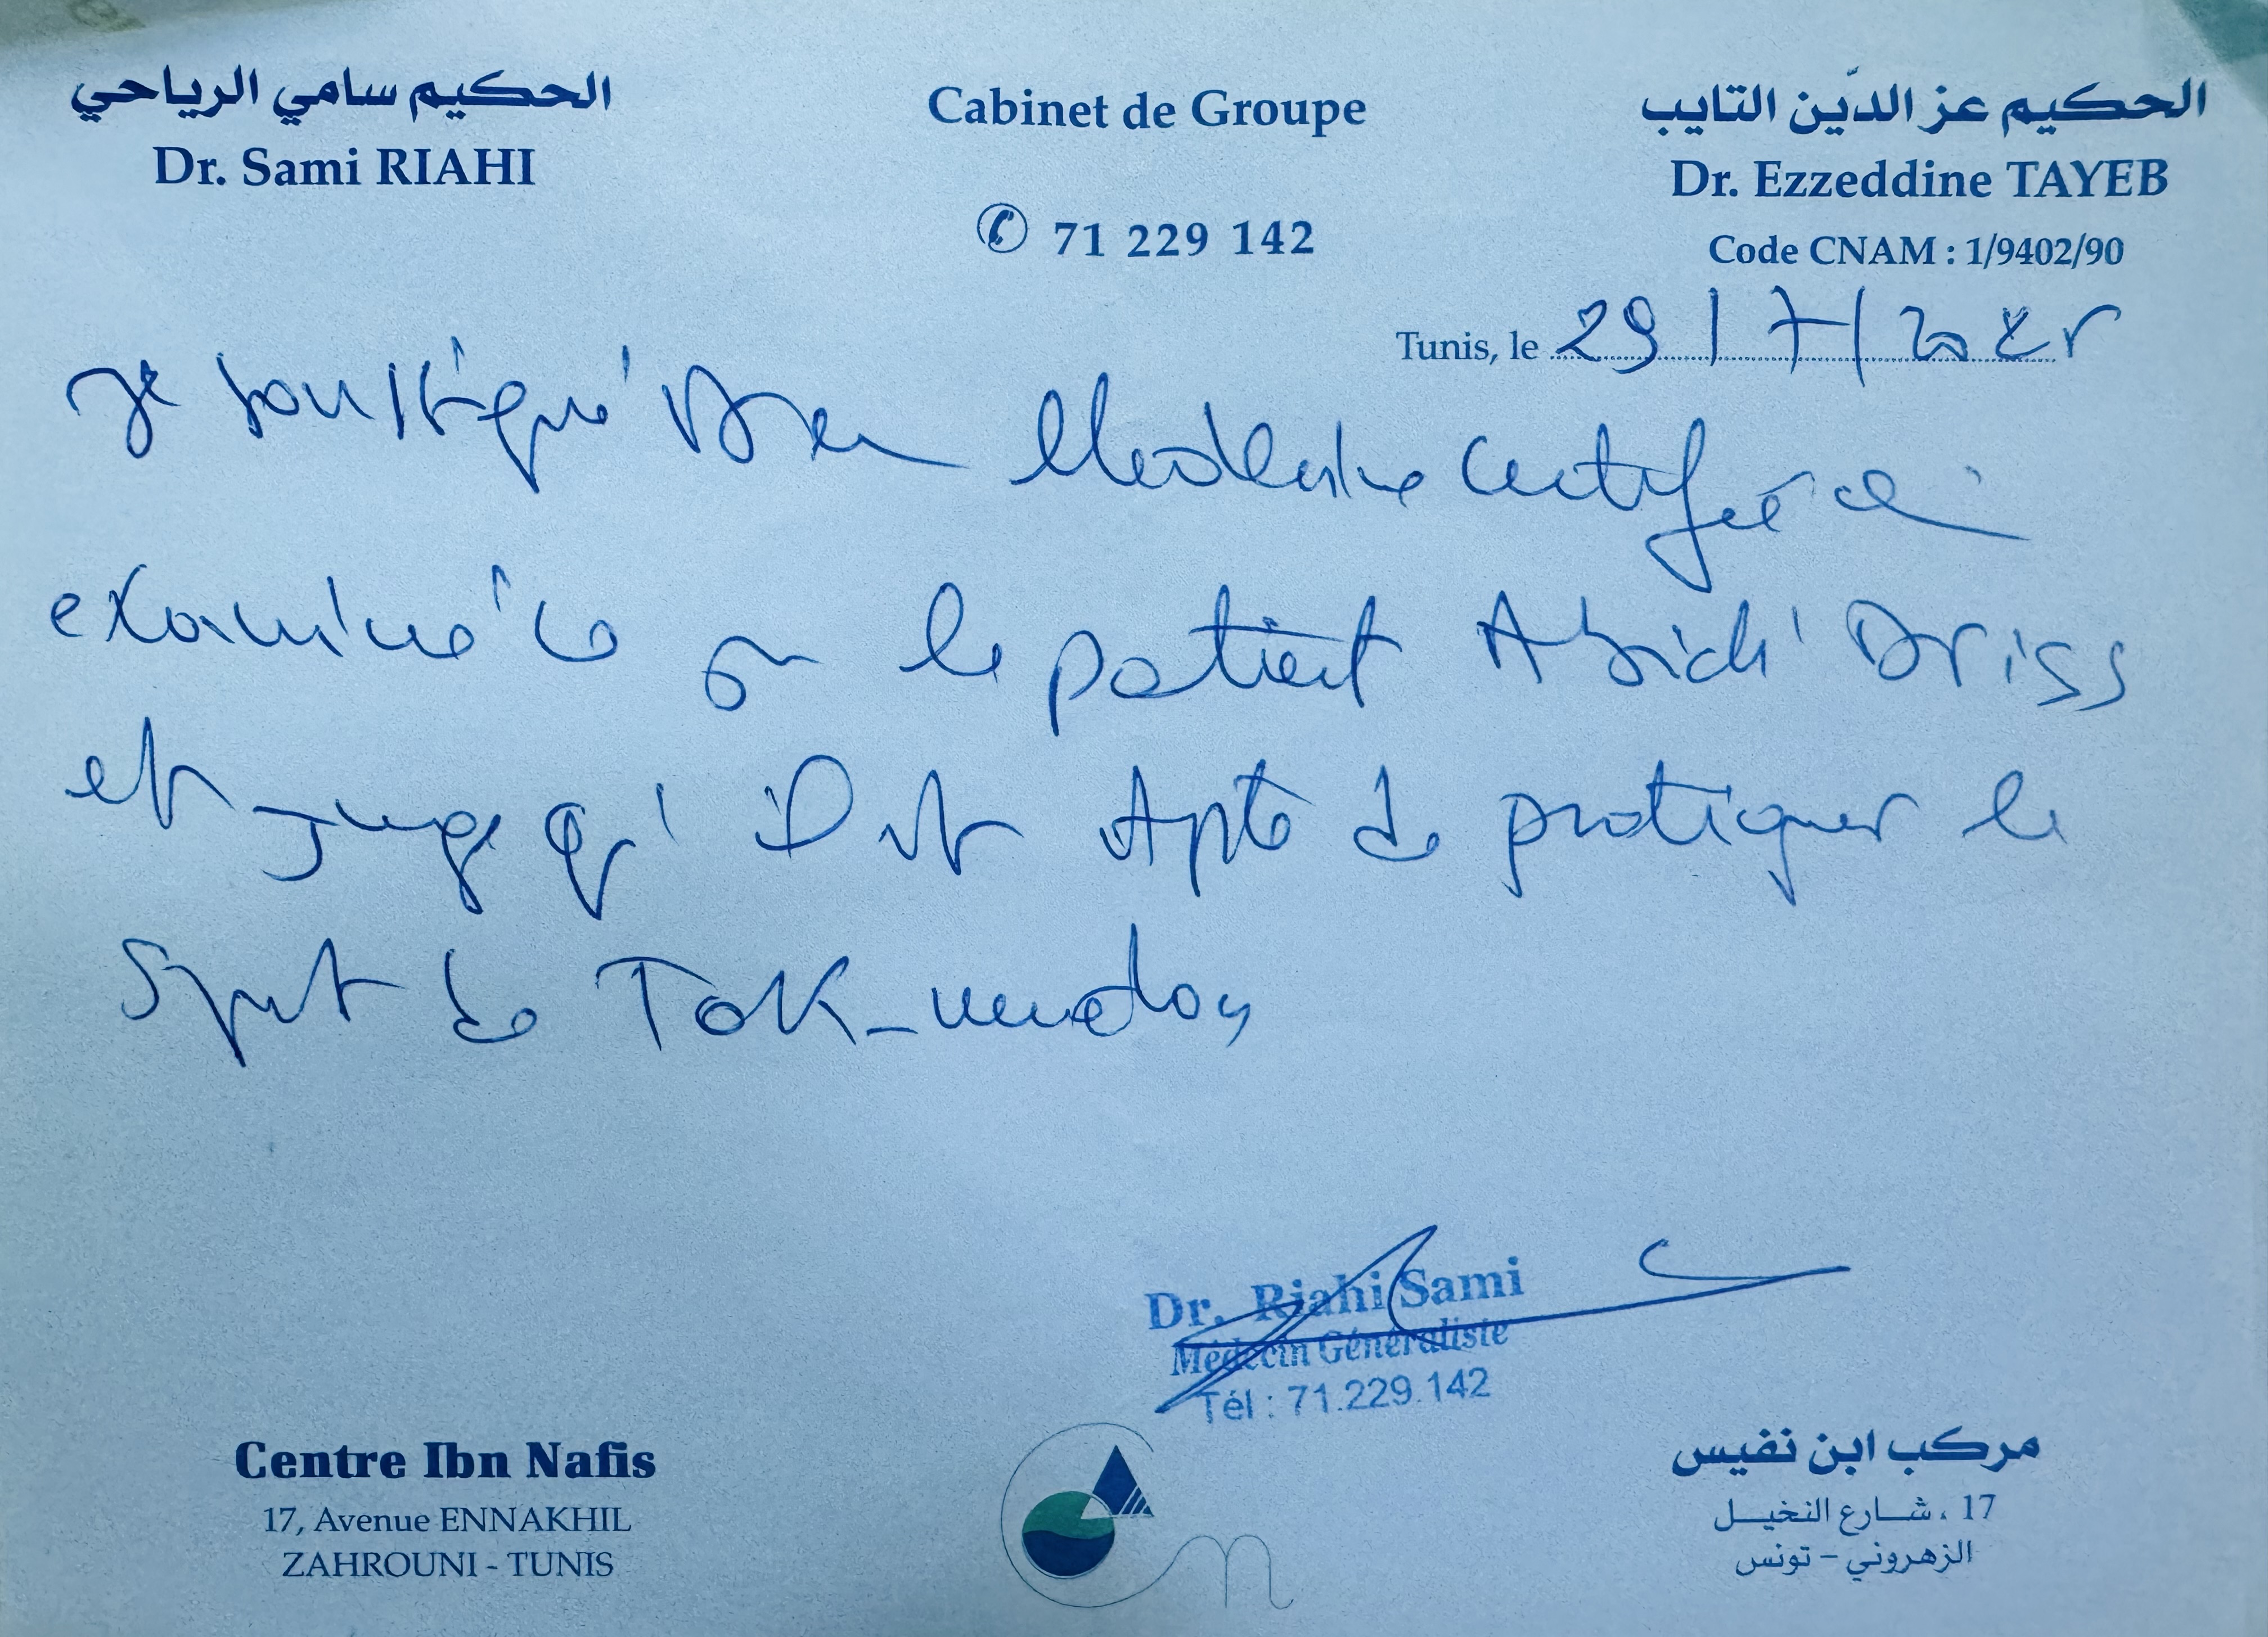 الحكيم سامي الرياحي
Dr. Sami RIAHI
Cabinet de Groupe
71 229 142
الحكيم عز الدّين التايب
Dr. Ezzeddine TAYEB
Code CNAM : 1/9402/90
Tunis, le 29/7/
Je soussigné Docteur certifie
examiné ce jour le patient Abidi Driss
et juge qu'il est Apte de pratiquer le
Sport de
Dr. Riahi Sami
Médecin Généraliste
Tél : 71.229.142
Centre Ibn Nafis
17, Avenue ENNAKHIL
ZAHROUNI - TUNIS
مركب ابن نفيس
17 ، شارع النخيل
الزهروني - تونس